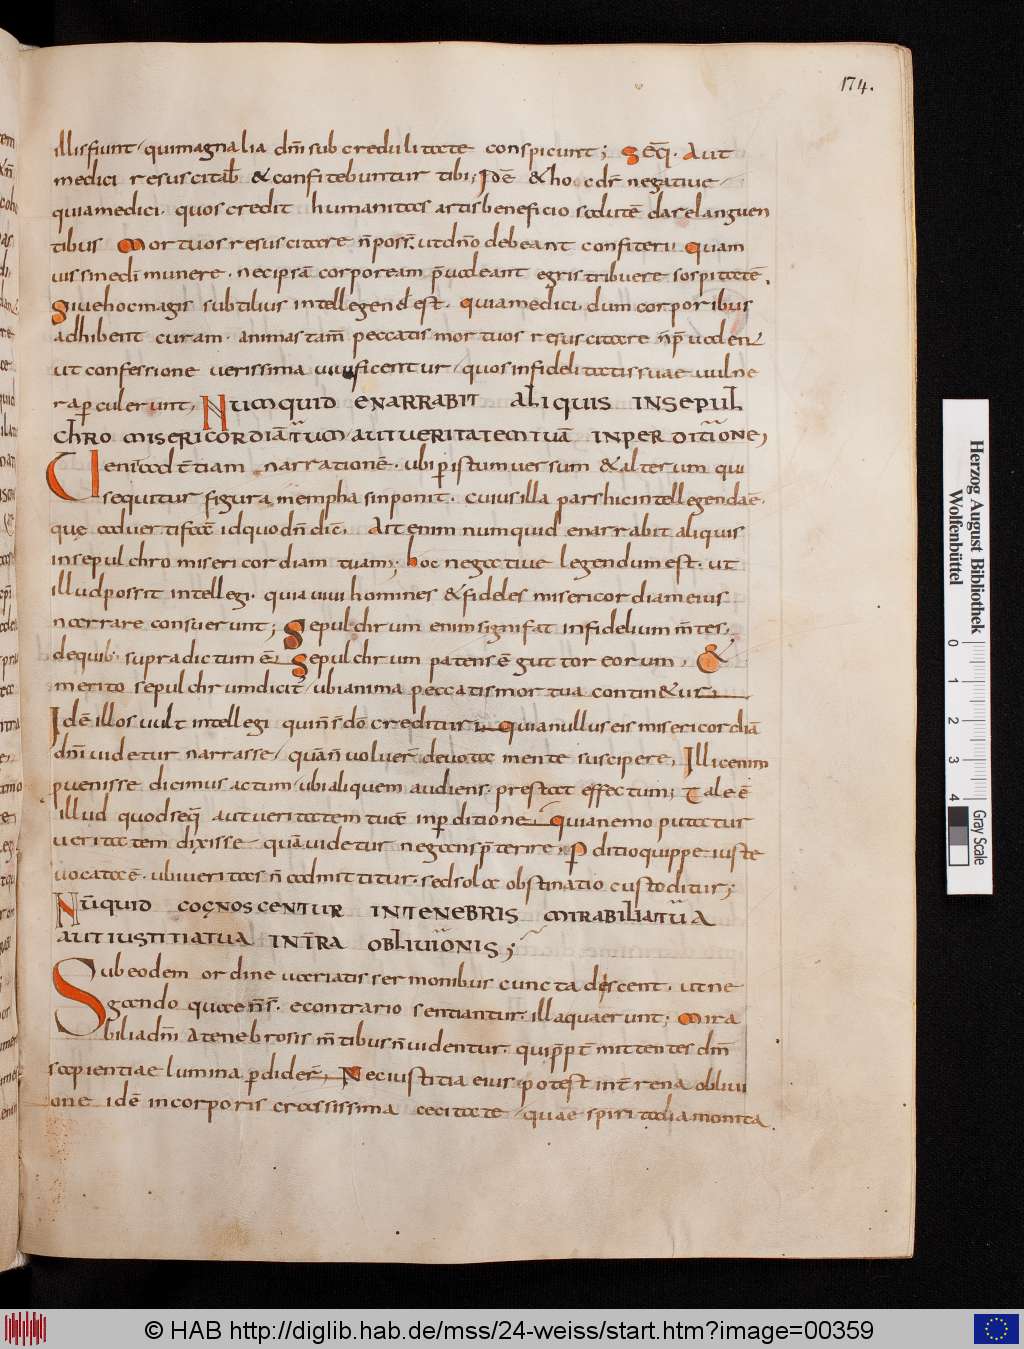 174.
illis fiunt, qui magnalia dn̄i sub credulitate conspiciunt; Seq̄. Aut
medici resuscitab̄ & confitebuntur tibi; Idē & hoc adr̄ negative
quia medici. quos credit humanitas artis beneficio salutē dare languen
tibus Mortuos resuscitare n̄ poss̄. ut dn̄o debeant confiteri. Quam
vis sine dī munere. nec ipsam corpoream p̄valeant egris tribuere sospitatē.
Sive hoc magis subtilius intellegend̄ est. quia medici dum corporibus
adhibent curam. animas tam̄ peccatis mortuos resuscitare n̄ p̄valent
ut confessione verissima vivificentur, quos infidelitatis suae vulne
ra perculerunt, Numquid enarrabit aliquis in sepul
chro misericordiā tuam aut veritatem tuā in perditione,
Venī ad t̄tiam narrationē. ubi per istum versum & alterum qui
sequitur figura m̄empha sin ponit. cuius illa pars hic intellegenda ē.
quę advertit facē id quod n̄ dic̄. Ait enim numquid enarrabit aliquis
in sepulchro misericordiam tuam; hoc negative legendum est. ut
illud possit intellegi. quia vivi homines & fideles misericordiam eius
narrare consuerunt; Sepulchrum enim significat infidelium m̄tes,
de quib. supra dictum ē Sepulchrum patens ē guttor eorum. &
merito sepulchrum dicit, ubi anima peccatis mortua continetur
Idē illos vult intellegi qui n̄ s̄ dō credituri. Quia nullus eis misericordiā
dn̄i videtur narrasse, quā n̄ voluer̄ devota mente suscipere. Illic enim
p̄venisse dicimus actum, ubi aliquem audiens prestat effectum; Tale ē
illud quod seq̄ aut veritatem tuā in p̄ditione Quia nemo putatur
veritatem dixisse quā videtur negans p̄terire; P̄ditio quippe iuste
vocata ē. ubi veritas n̄ admittitur. sed sola obstinatio custoditur;
Nūquid cognoscentur in tenebris mirabilia tua
aut iustitia tua in t̄ra oblivionis;
Sub eodem ordine variatis sermonibus cuncta descent. ut ne
gando quae n̄ s̄. e contrario sentiantur. illa quae runt; Mira
bilia dn̄i a tenebrosis m̄tibus n̄ videntur. qui p̄p̄t̄ mittentes dm̄
sapientiae lumina p̄dider̄, Nec iustitia eius potest in t̄rena oblivi
one idē in corporis crassissima cecitate, quae spiritalia monita
Herzog August Bibliothek
Wolfenbüttel
0 1 2 3 4
Gray Scale
© HAB http://diglib.hab.de/mss/24-weiss/start.htm?image=00359